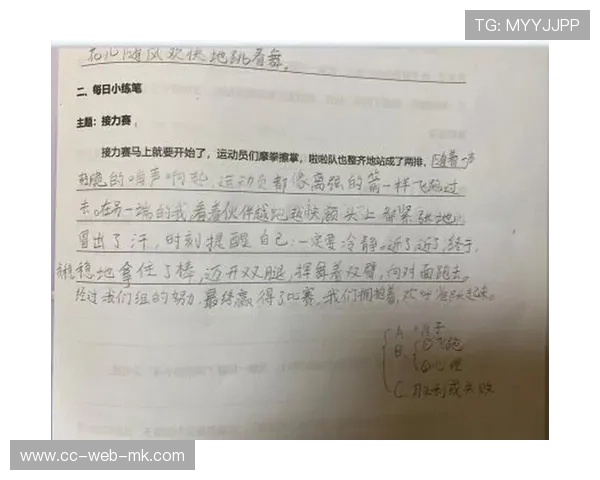 TG: MYYJJPP
花儿随风欢快地跳着舞。
二、每日小练笔
主题：接力赛
接力赛马上就要开始了，运动员们摩拳擦掌，啦啦队也整齐地站成了两排，随着一声
清脆的哨声响起，运动员都像离弦的箭一样飞跑过
去。在另一端的我看着伙伴越跑越快额头上都紧张地
冒出了汗，时刻提醒自己：一定要冷静。近了近了，终于，
稳稳地拿住了棒，迈开双腿，挥舞着双臂，向对面跑去。
经过我们组的努力，最终赢得了比赛，我们拥抱着，欢呼起来。
A.
B. ①飞跑
②心理
C. 胜利或失败
www-cc-web-mk.com